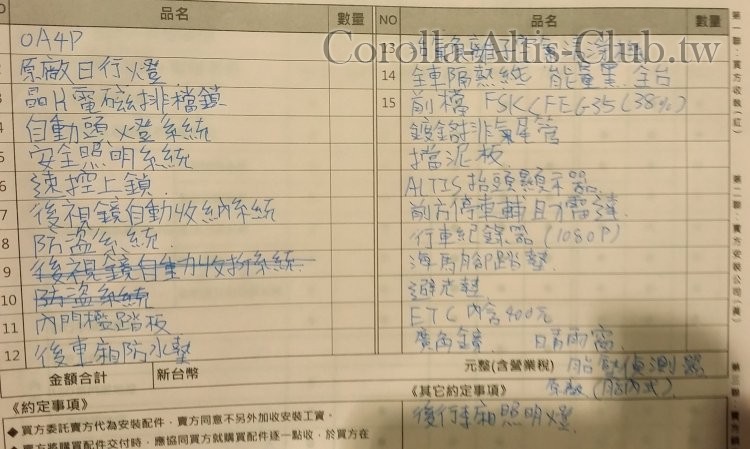 品名
數量
OA4P
原廠日行燈
晶片電磁排檔鎖
自動頭燈系統
5 安全照明系統
6 速控上鎖
7 後視鏡自動收納系統
8 防盜系統
9 後視鏡自動收折系統
10 防盜系統
11 內門檻踏板
12 後車廂防水墊
金額合計
新台幣
NO
品名
數量
Corolla-Altis-Club.tw
13
14 全車隔熱紙 能量黑 全台
15 前檔 FSK FEG35 (38%)
鍍鉻排氣尾管
擋泥板
ALTIS 抬頭顯示器
前方停車輔助雷達
行車紀錄器 (1080P)
海馬腳踏墊
避光墊
ETC 內含400元
廣角鏡 晴雨窗
元整(含營業稅) 胎壓偵測器
原廠 (胎內式)
《約定事項》
◆ 買方委託賣方代為安裝配件，賣方同意不另外加收安裝工資。
◆ 賣方將購買配件交付時，應協同買方就購買配件逐一點收，於買方在
《其它約定事項》
後行李廂照明燈
第一聯：賣方收執(紅)
第二聯：賣方安裝公司(黃)